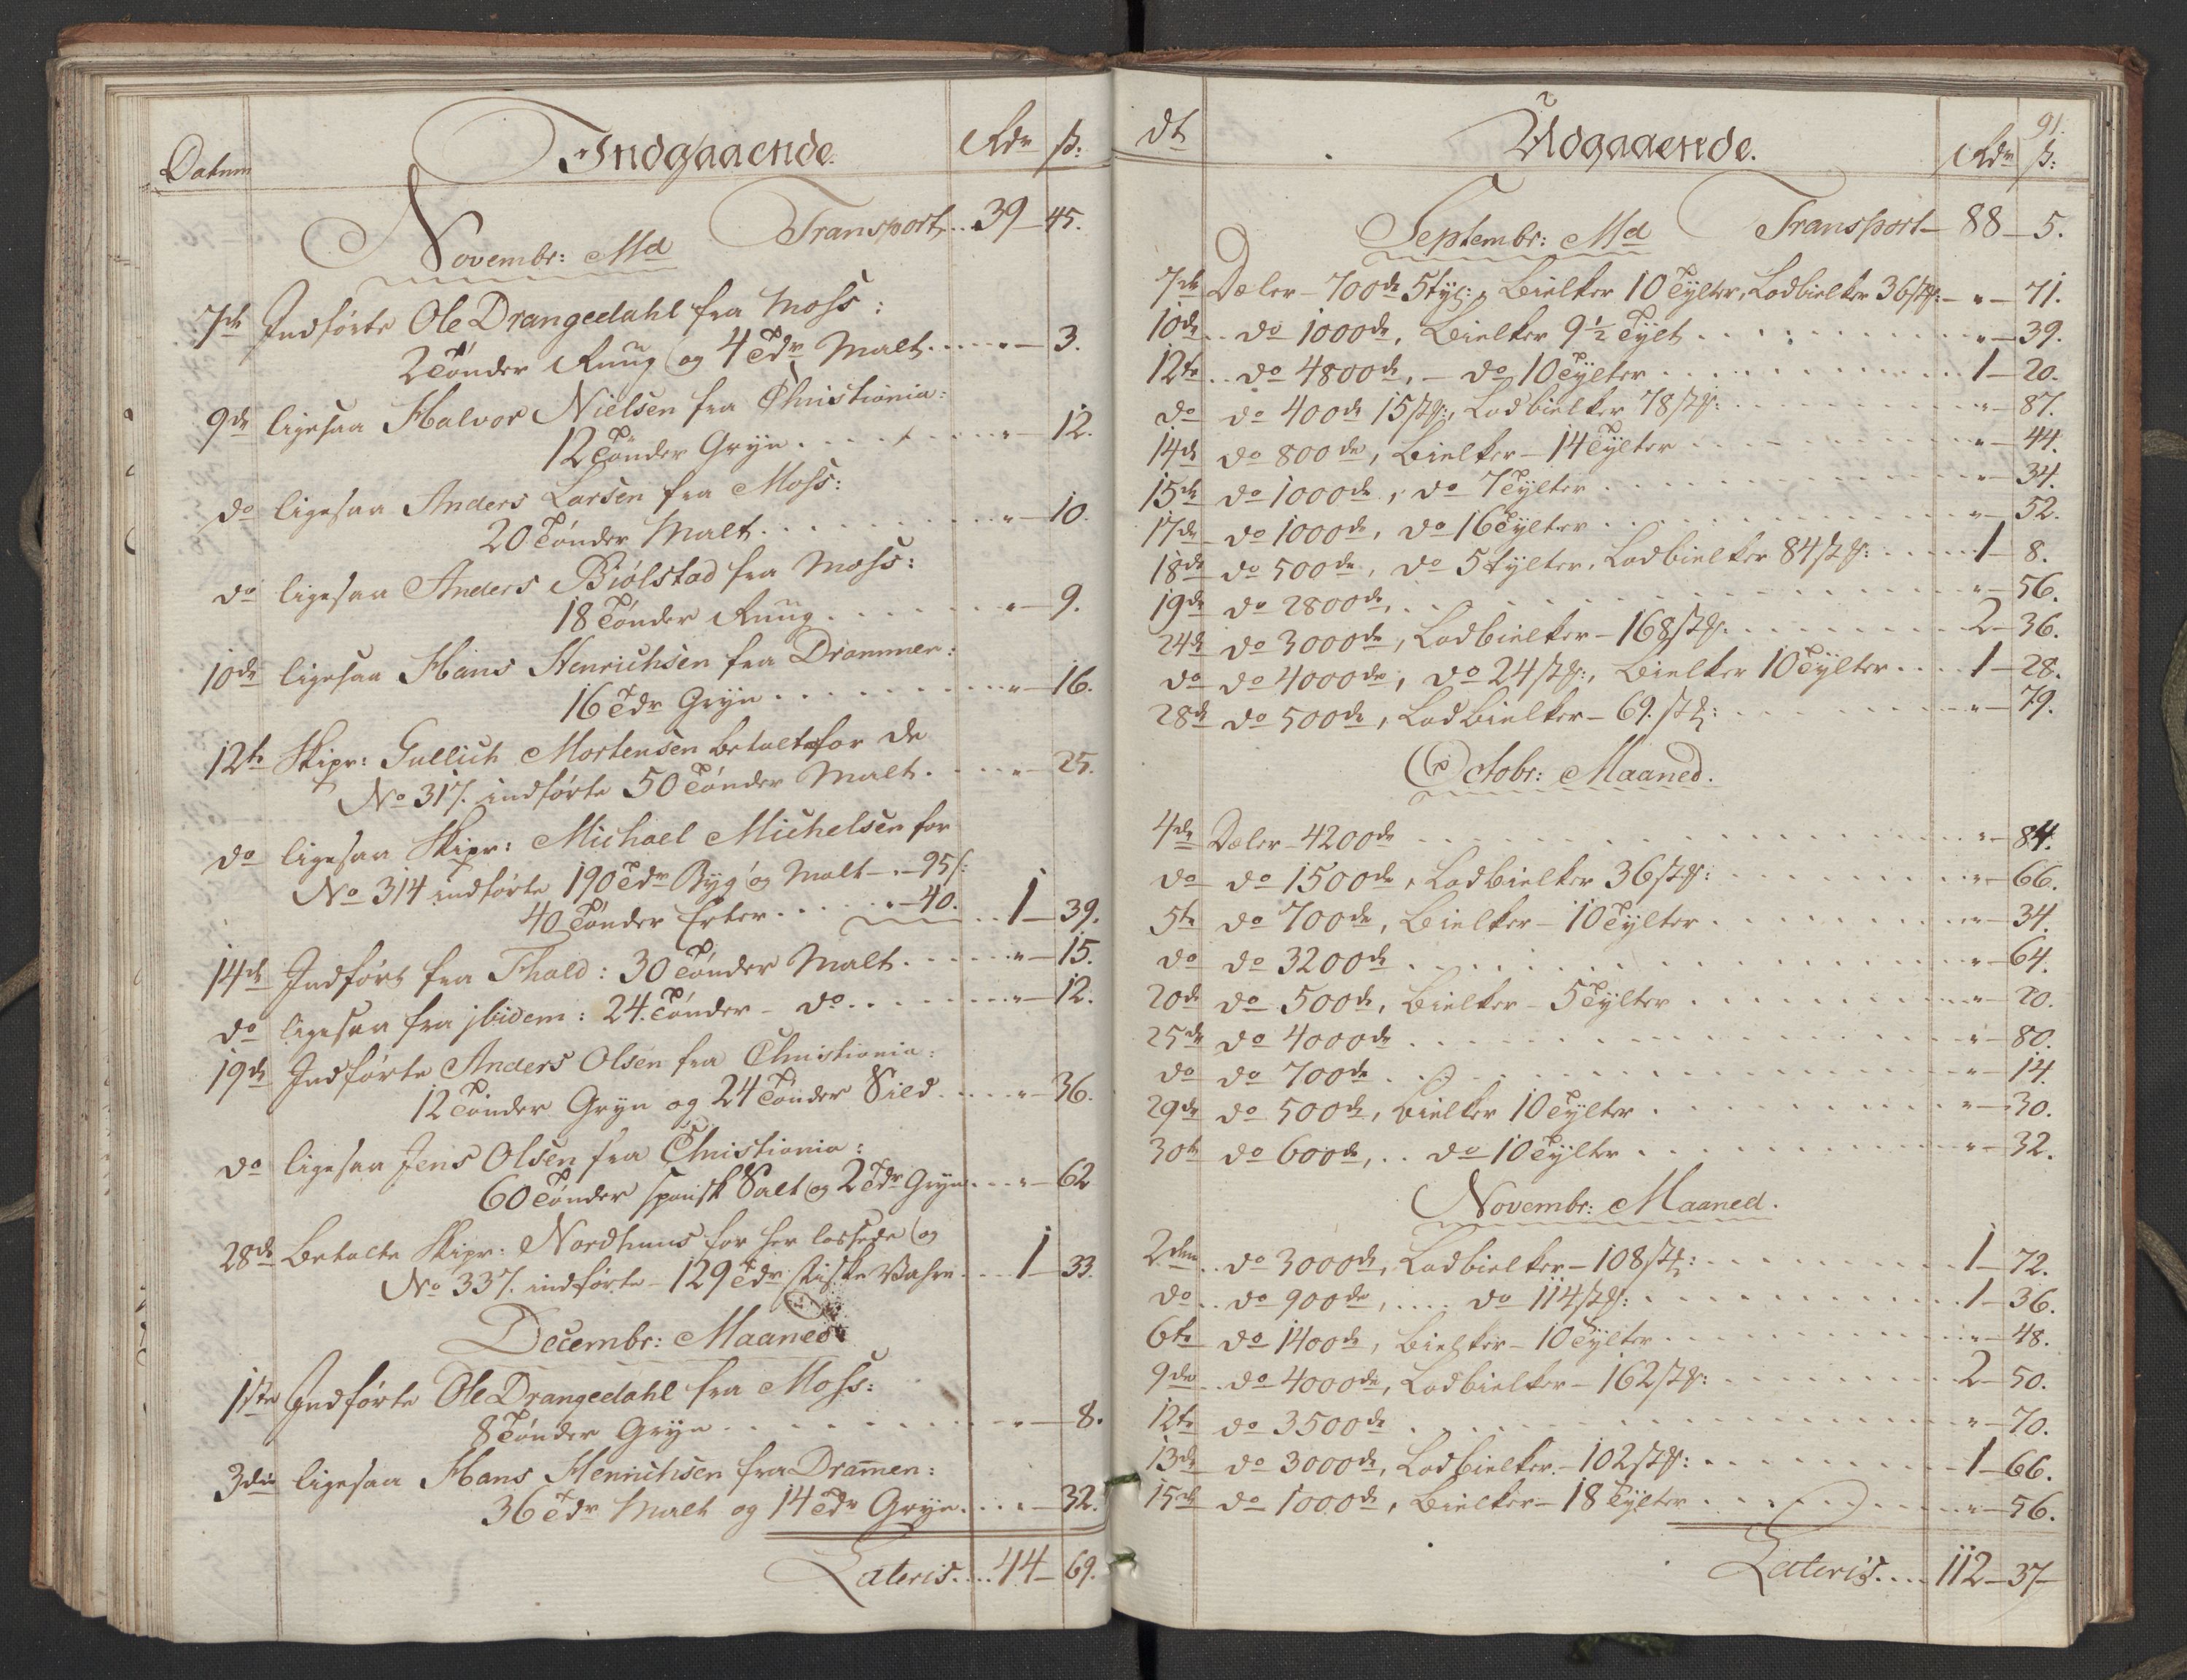 Datum
Indgaaende.
Rdr
ß:
Transport.. 39 - 45.
Novembr: Md
7de Indførte Ole Drangedahl fra Moss:
2 Tønder Ruug og 4 Tdr Malt..... " - 3.
9de ligesaa Halvor Nielsen fra Christiania:
12 Tønder Gryn........ " - 12.
do ligesaa Anders Larsen fra Moss:
20 Tønder Malt........ " - 10.
do ligesaa Anders Biölstad fra Moss:
18 Tønder Ruug....... " - 9.
10de ligesaa Hans Henrichsen fra Drammen:
16 Tdr Gryn......... " - 16.
12te Skipr: Gullich Mortensen betalte for de
No 317. indførte 50 Tønder Malt.... " - 25.
do ligesaa Skipr: Michael Michelsen for
No 314 indførte 190 Tdr Byg og Malt - " - 95 ß:
40 Tønder Erter..... " - 40. .. 1 - 39.
14de Indført fra Fhald: 30 Tønder Malt..... " - 15.
do ligesaa fra jbidem: 24. Tønder - do....... " - 12.
19de Indførte Anders Olsen fra Christiania:
12 Tønder Gryn og 24 Tønder Sild.... " - 36.
do ligesaa Jens Olsen fra Christiania:
60 Tønder spansk Salt og 2 Tdr Gryn... " - 62
28de Betalte Skipr: Nordhuus for her lossede og
No 337. indførte - 129 Tdr stiske Vahre... 1 - 33.
Decembr: Maaned.
1ste Indførte Ole Drangedahl fra Moss:
8 Tønder Gryn........ " - 8.
3die ligesaa Hans Henrichsen fra Dramen:
36 Tdr Malt og 14 Tdr Gryn.... " - 32.
Lateris.... 44 - 69.
91.
dt
Udgaaende.
Rdr
ß:
Septembr: Md Transport - 88 - 5.
7de Dæler - 700de 5 tyl:, Bielker 10 Tylter, Lodbielker 36 stk: - " - 71.
10de .. do 1000de, Bielker 9 1/2 Tylt........ " - 39.
12te .. do 4800de, - do 10 Tylter......... 1 - 20.
do do 400de 15 stk:, Lodbielker 78 stk:...... " - 87.
14de do 800de, Bielker - 14 Tylter......... " - 44.
15de do 1000de, do 7 Tylter......... " - 34.
17de do 1000de, do 16 Tylter......... " - 52.
18de do 500de, do 5 tylter, Lodbielker 84 stk:..... 1 - 8.
19de do 2800de,............ " - 56.
24de do 3000de, Lodbielker - 168 stk........ 2 - 36.
do do 4000de, do 24 stk:, Bielker 10 Tylter.... 1 - 28.
28de do 500de, Lodbielker - 69. stk:....... " - 79.
Octobr: Maaned.
4de Dæler - 4200de........... " - 84.
do do 1500de, Lodbielker 36 stk:....... " - 66.
5te do 700de, Bielker - 10 Tylter........ " - 34.
do do 3200de............ " - 64.
20de do 500de, Bielker - 5 Tylter........ " - 20.
25de do 4000de............ " - 80.
do do 700de............ " - 14.
29de do 500de, Bielker 10 Tylter......... " - 30.
30te do 600de,.. do 10 Tylter......... " - 32.
Novembr: Maaned.
2den .. do 3000de, Lodbielker - 108 stk:....... 1 - 72.
do .. do 900de,.... do 114 stk:........ 1 - 36.
6te do 1400de, Bielker - 10 Tylter........ " - 48.
9de .. do 4000de, Lodbielker - 162 stk:....... 2 - 50.
12te do 3500de............ " - 70.
13de do 3000de, Lodbielker - 102 stk:....... 1 - 66.
15de do 1000de, Bielker - 18 Tylter........ " - 56.
Lateris.... 112 - 37 -